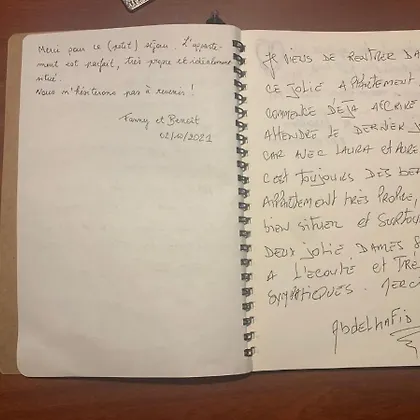 Merci pour ce (petit) séjour. L'apparte-
ment est parfait, très propre et idéalement
situé.
Nous n'hésiterons pas à revenir !
Fanny et Benoît
02/10/2021
Je viens de rentrer DA
CE JOLIE APPARTEMENT
COMMENCE DÉJA
ATTENDRE LE DERNIER J
CAR AVEC LAURA et AURE
C'EST toujours DES BEA
APPARTEMENT TRÈS PROPRE,
bien situer et SURTOU
DEUX JOLIE DAMES
A L'ECOUTE et TRÈ
SYMPATIQUES. MERCI
Abdelhafid